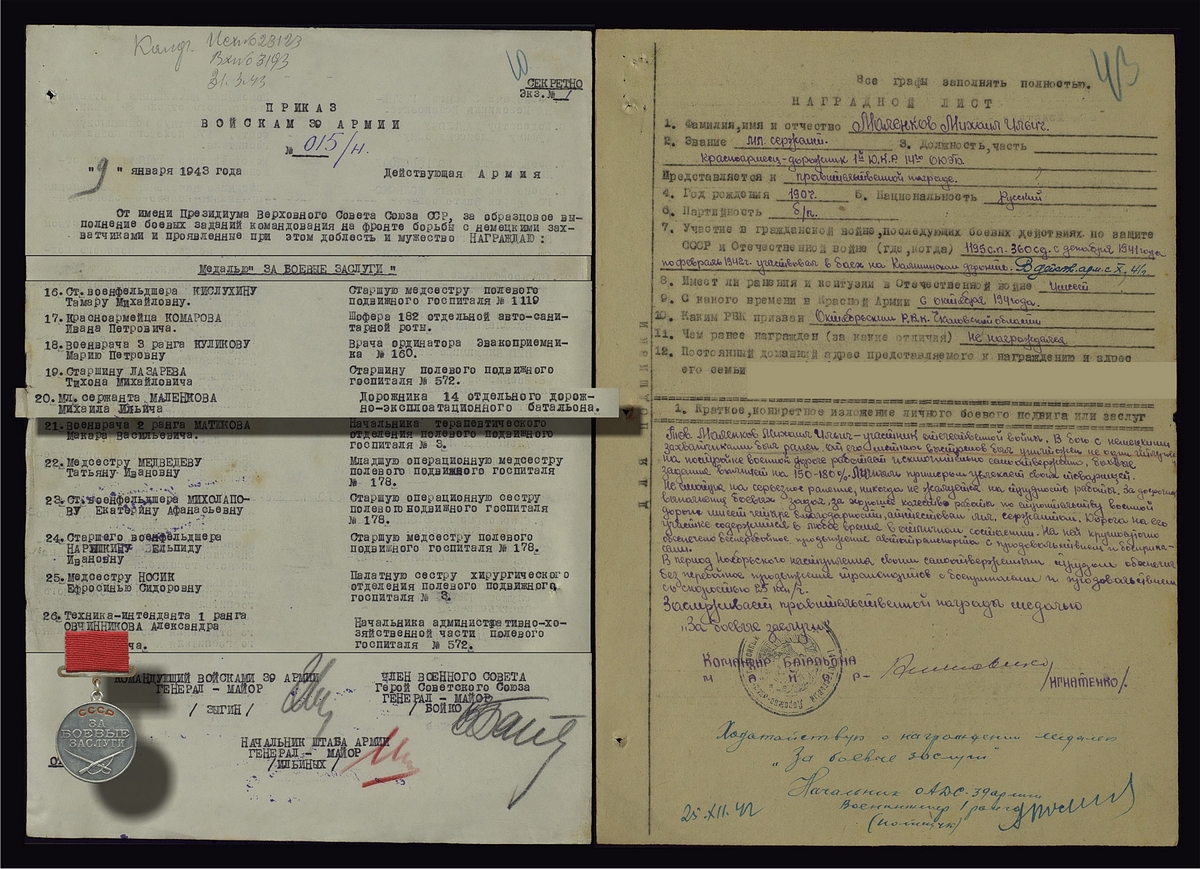 Исх№023123
Вх№03193
21.3.43
10
СЕКРЕТНО
Экз.№ 1
ПРИКАЗ
ВОЙСКАМ 39 АРМИИ
№ 015/н.
"9" января 1943 года Действующая Армия
От имени Президиума Верховного Совета Союза ССР, за образцовое вы-
полнение боевых заданий командования на фронте борьбы с немецкими зах-
ватчиками и проявленные при этом доблесть и мужество НАГРАЖДАЮ:
Медалью" ЗА БОЕВЫЕ ЗАСЛУГИ"
16. Ст.военфельдшера КИСЛУХИНУ Старшую медсестру полевого
Тамару Михайловну. подвижного госпиталя № 1119
17. Красноармейца КОМАРОВА Шофера 182 отдельной авто-сани-
Ивана Петровича. тарной роты.
18. Военврача 3 ранга КУЛИКОВУ Врача ординатора Эвакоприемни-
Марию Петровну ка № 160.
19. Старшину ЛАЗАРЕВА Старшину полевого подвижного
Тихона Михайловича госпиталя № 572.
20. Мл.сержанта МАЛЕНКОВА Дорожника 14 отдельного дорож-
Михаила Ильича но-эксплоатационного батальона.
21. Военврача 2 ранга МАТЮКОВА Начальника терапевтического
Макара Васильевича. отделения полевого подвижного
госпиталя № 3.
22. Медсестру МЕДВЕДЕВУ Младшую операционную медсестру
Татьяну Ивановну полевого подвижного госпиталя
№ 178.
23. Ст.военфельдшера МИХОЛАПО- Старшую операционную сестру
ВУ Екатерину Афанасьевну полевого подвижного госпиталя
№ 178.
24. Старшего военфельдшера Старшую медсестру полевого
НАРЫШКИНУ Зельпиду подвижного госпиталя № 178.
Ивановну
25. Медсестру НОСИК Палатную сестру хирургического
Ефросинью Сидоровну отделения полевого подвижного
госпиталя № 3.
26. Техника-интенданта 1 ранга
ОВЧИННИКОВА Александра Начальника административно-хо-
зяйственной части полевого
госпиталя № 572.
КОМАНДУЮЩИЙ ВОЙСКАМИ 39 АРМИИ ЧЛЕН ВОЕННОГО СОВЕТА
ГЕНЕРАЛ - МАЙОР Герой Советского Союза
ГЕНЕРАЛ - МАЙОР
/ ЗЫГИН / / БОЙКО
НАЧАЛЬНИК ШТАБА АРМИИ
ГЕНЕРАЛ - МАЙОР
/ИЛЬИНЫХ/
СССР
ЗА
БОЕВЫЕ
ЗАСЛУГИ
43
Все графы заполнять полностью.
НАГРАДНОЙ ЛИСТ
1. Фамилия,имя и отчество Маленков Михаил Ильич.
2. Звание мл. сержант. 3. Должность,часть
красноармеец-дорожник
Представляется к правительственной награде.
4. Год рождения 1907. 5. Национальность Русский
6. Партийность б/п.
7. Участие в гражданской войне,последующих боевых действиях по защите
СССР и Отечественной войне (где,когда) 1195с.п. 360сд. с декабря 1941года
по февраль 1942г. участвовал в боях на Калининском фронте.
8. Имеет ли ранения и контузии в Отечественной войне Имеет
9. С какого времени в Красной Армии С октября 1941года.
10. Каким РВК призван Октябрьским Р.В.К. Чкаловской области
11. Чем ранее награжден (за какие отличия) Не награждался
12. Постоянный домашний адрес представляемого к награждению и адрес
его семьи
1. Краткое,конкретное изложение личного боевого подвига или заслуг
Тов. Маленков Михаил Ильич-участник отечественной войны. В бою с немецкими
захватчиками был ранен.
На постройке военной дороги работает исключительно самоотверженно, боевые
задания выполняет на 150-180%. Личным примером увлекает своих товарищей.
Не смотря на серьезное ранение, никогда не жалуется на трудность работы. За досрочное
выполнение боевых задач, за хорошее качество работы по строительству военной
дороги имеет четыре благодарности, аттестован мл. сержантом. Дорога на его
участке содержится в любое время в отличном состоянии. На ней круглосуточно
обеспечено бесперебойное продвижение автотранспорта с продовольствием и боеприпа-
сами.
В период Ноябрьского наступления своим самоотверженным трудом обеспечил
бесперебойное продвижение транспортов с боеприпасами и продовольствием
со скоростью 25 км/ч.
Заслуживает правительственной награды медалью
"За боевые заслуги"
КОМАНДИР БАТАЛЬОНА
МАЙОР- /ИГНАТЕНКО/.
Ходатайствую о награждении медалью
"За боевые заслуги"
Начальник ОАДС-39 армии
Военинженер 1 ранга
25.XII.42